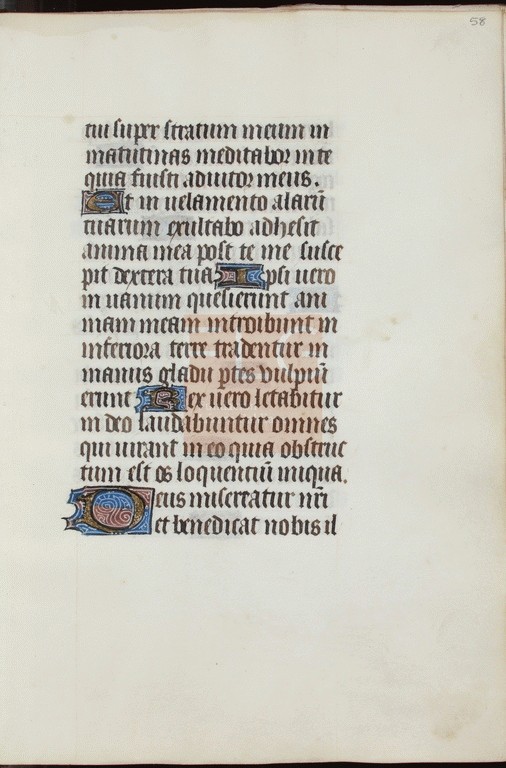 58
tui super stratum meum in
matutinas meditabor in te
quia fuisti adiutor meus.
Et in uelamento alarū
tuarum exultabo adhesit
anima mea post te me susce
pit dextera tua Ipsi uero
in uanum quesierunt ani
mam meam introibunt in
inferiora terre tradentur in
manus gladii ptes vulpiū
erunt Rex uero letabitur
in deo laudabuntur omnes
qui iurant in eo quia obstruc
tum est os loquentiū iniqua.
Deus misereatur nrī
et benedicat nobis il